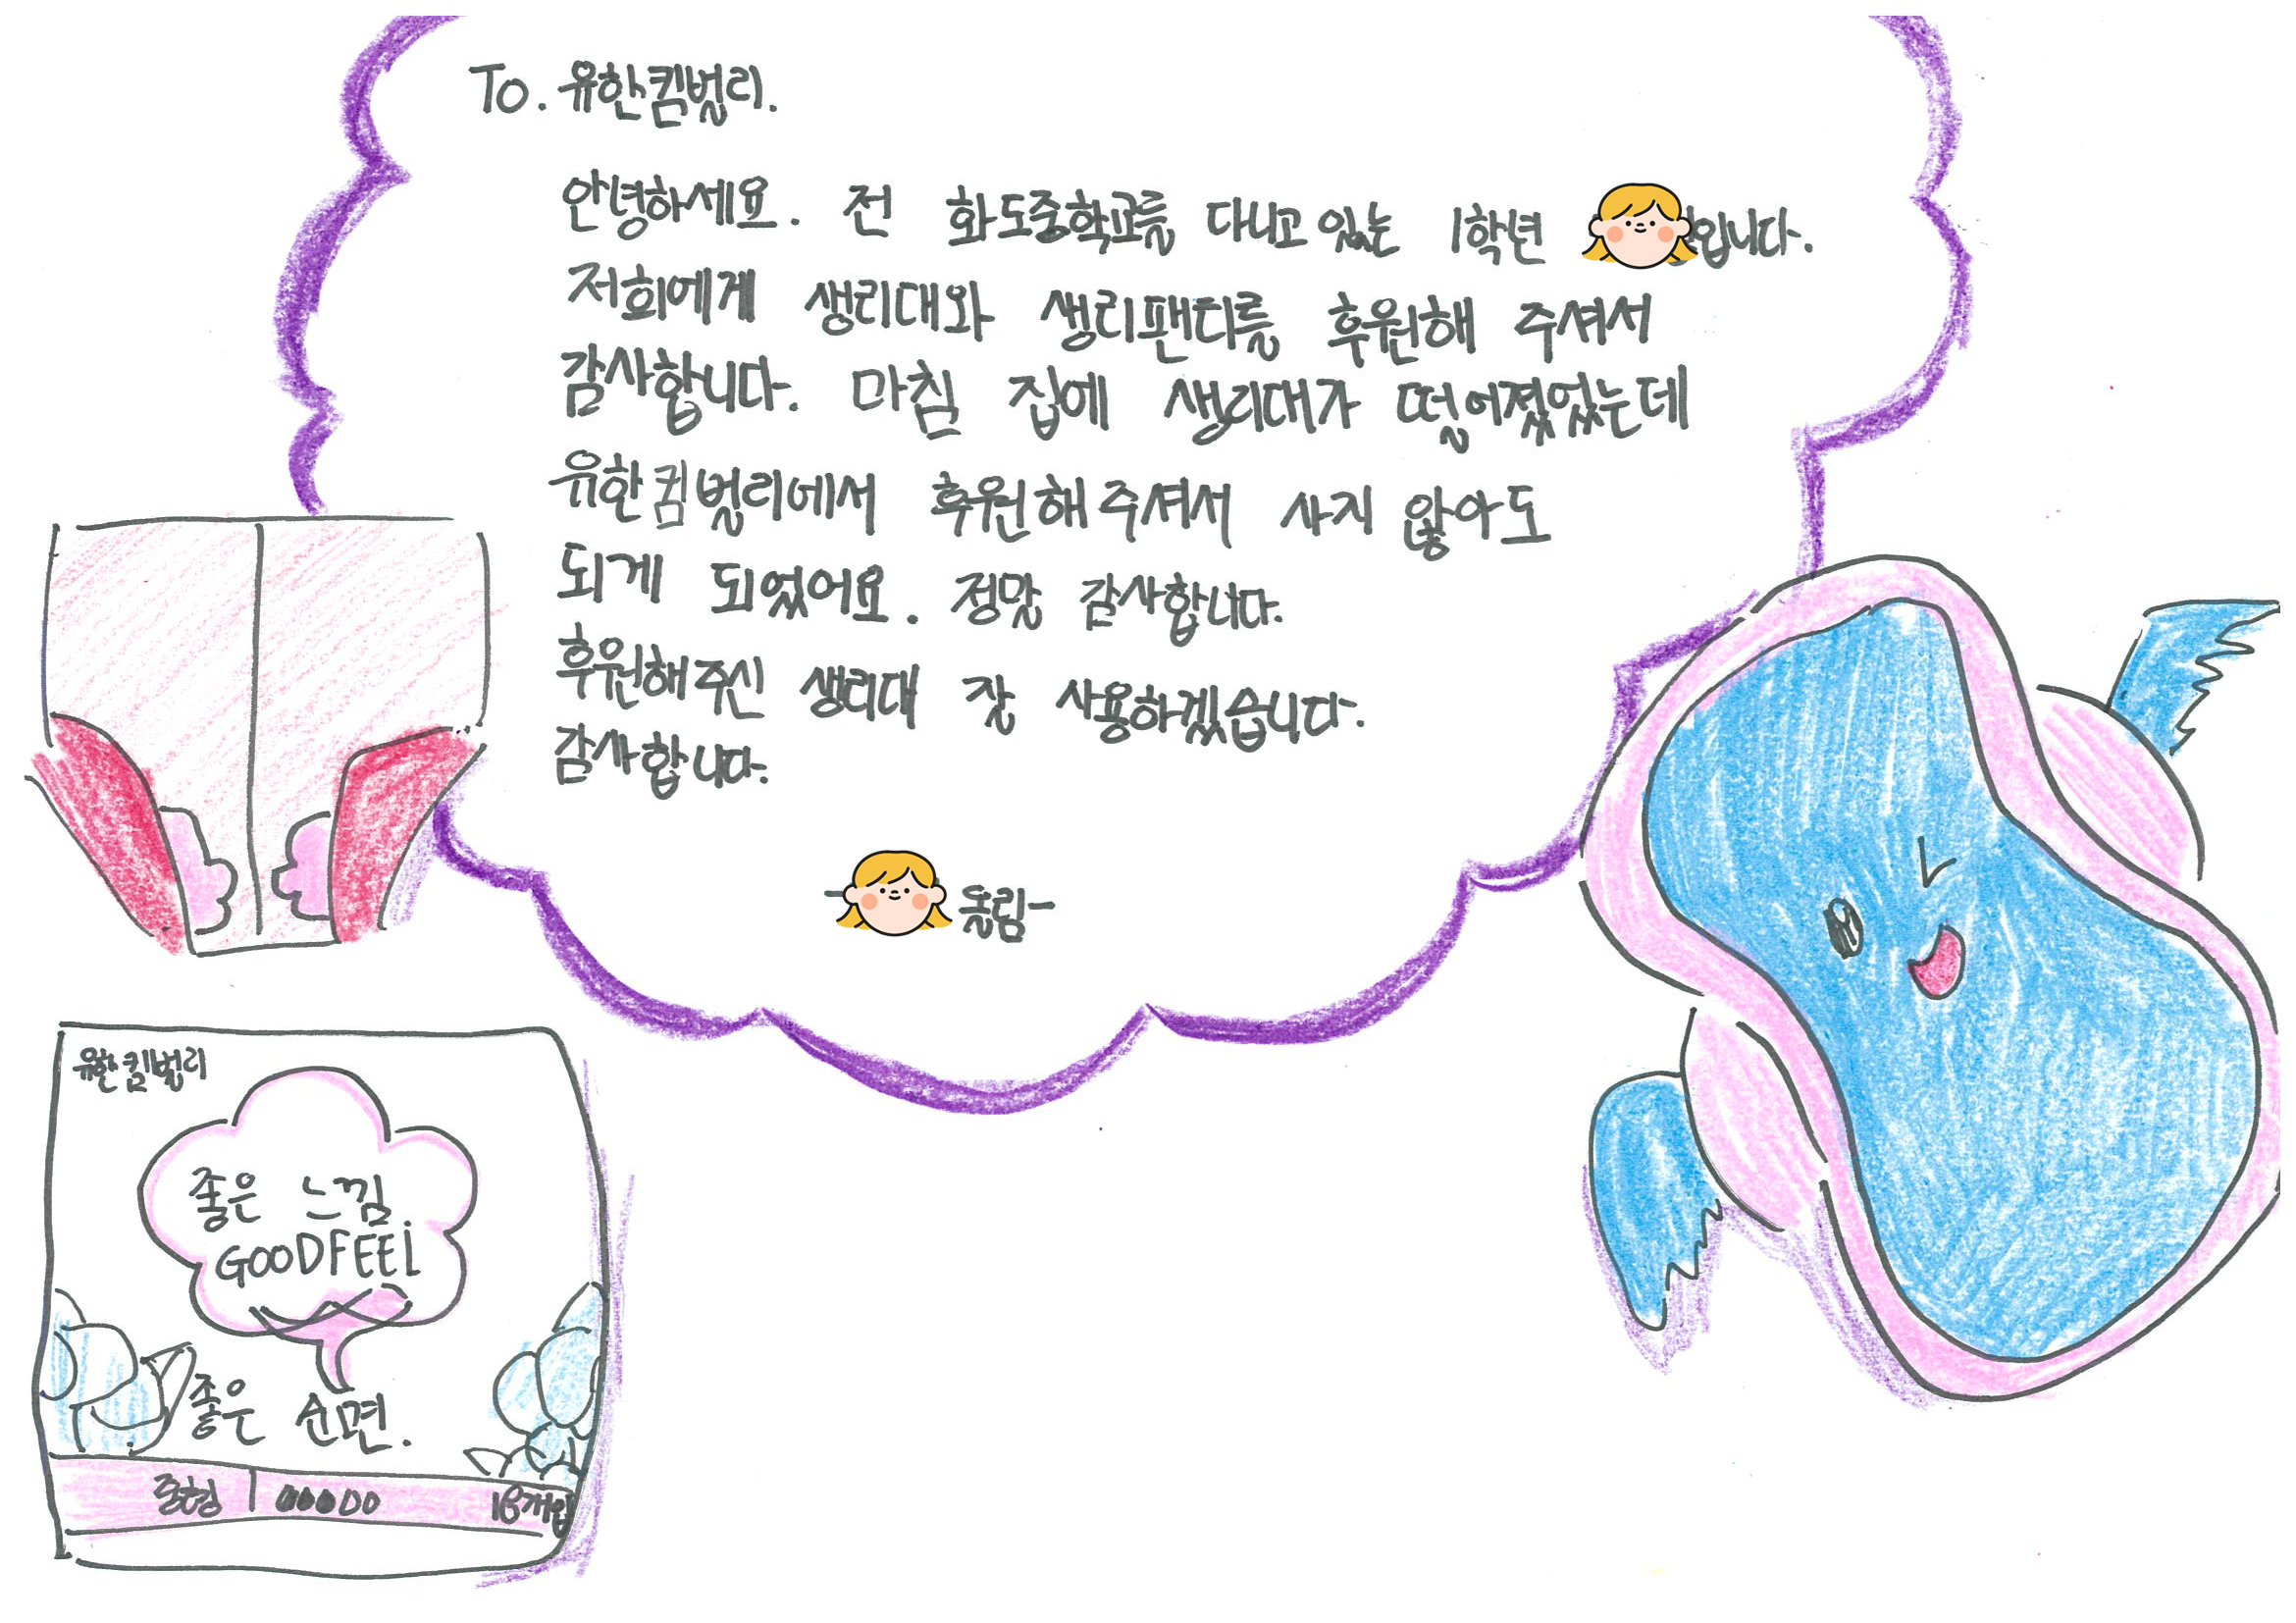 To. 유한킴벌리.
안녕하세요. 전 화도중학교를 다니고 있는 1학년 입니다.
저희에게 생리대와 생리팬티를 후원해 주셔서
감사합니다. 마침 집에 생리대가 떨어졌었는데
유한킴벌리에서 후원해주셔서 사지 않아도
되게 되었어요. 정말 감사합니다.
후원해주신 생리대 잘 사용하겠습니다.
감사합니다.
- 올림-
유한킴벌리
좋은 느낌
GOODFEEL
좋은 순면.
중형 18개입